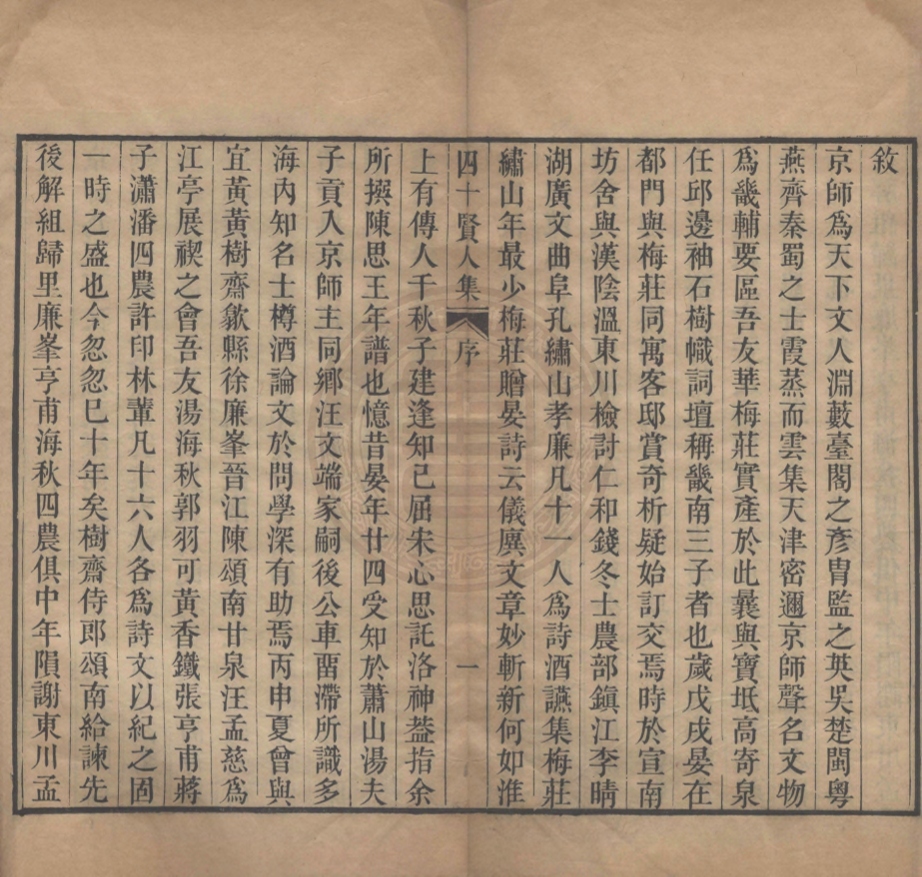 敘
京師爲天下文人淵藪臺閣之彥胄監之英吳楚閩粵
燕齊秦蜀之士霞蒸而雲集天津密邇京師聲名文物
爲畿輔要區吾友華梅莊實產於此曩與寶坻高寄泉
任邱邊袖石樹幟詞壇稱畿南三子者也歲戊戌晏在
都門與梅莊同寓客邸賞奇析疑始訂交焉時於宣南
坊舍與漢陰溫東川檢討仁和錢冬士農部鎭江李晴
湖廣文曲阜孔繡山孝廉凡十一人爲詩酒讌集梅莊
繡山年最少梅莊贈晏詩云儀廙文章妙斬新何如淮
四十賢人集 序 一
上有傳人千秋子建逢知己屈宋心思託洛神葢指余
所撰陳思王年譜也憶昔晏年廿四受知於蕭山湯夫
子貢入京師主同鄉汪文端家嗣後公車畱滯所識多
海內知名士樽酒論文於問學深有助焉丙申夏曾與
宜黃黃樹齋歙縣徐廉峯晉江陳頌南甘泉汪孟慈爲
江亭展禊之會吾友湯海秋郭羽可黃香鐵張亨甫蔣
子瀟潘四農許印林輩凡十六人各爲詩文以紀之固
一時之盛也今忽忽已十年矣樹齋侍郎頌南給諫先
後解組歸里廉峯亨甫海秋四農俱中年隕謝東川孟